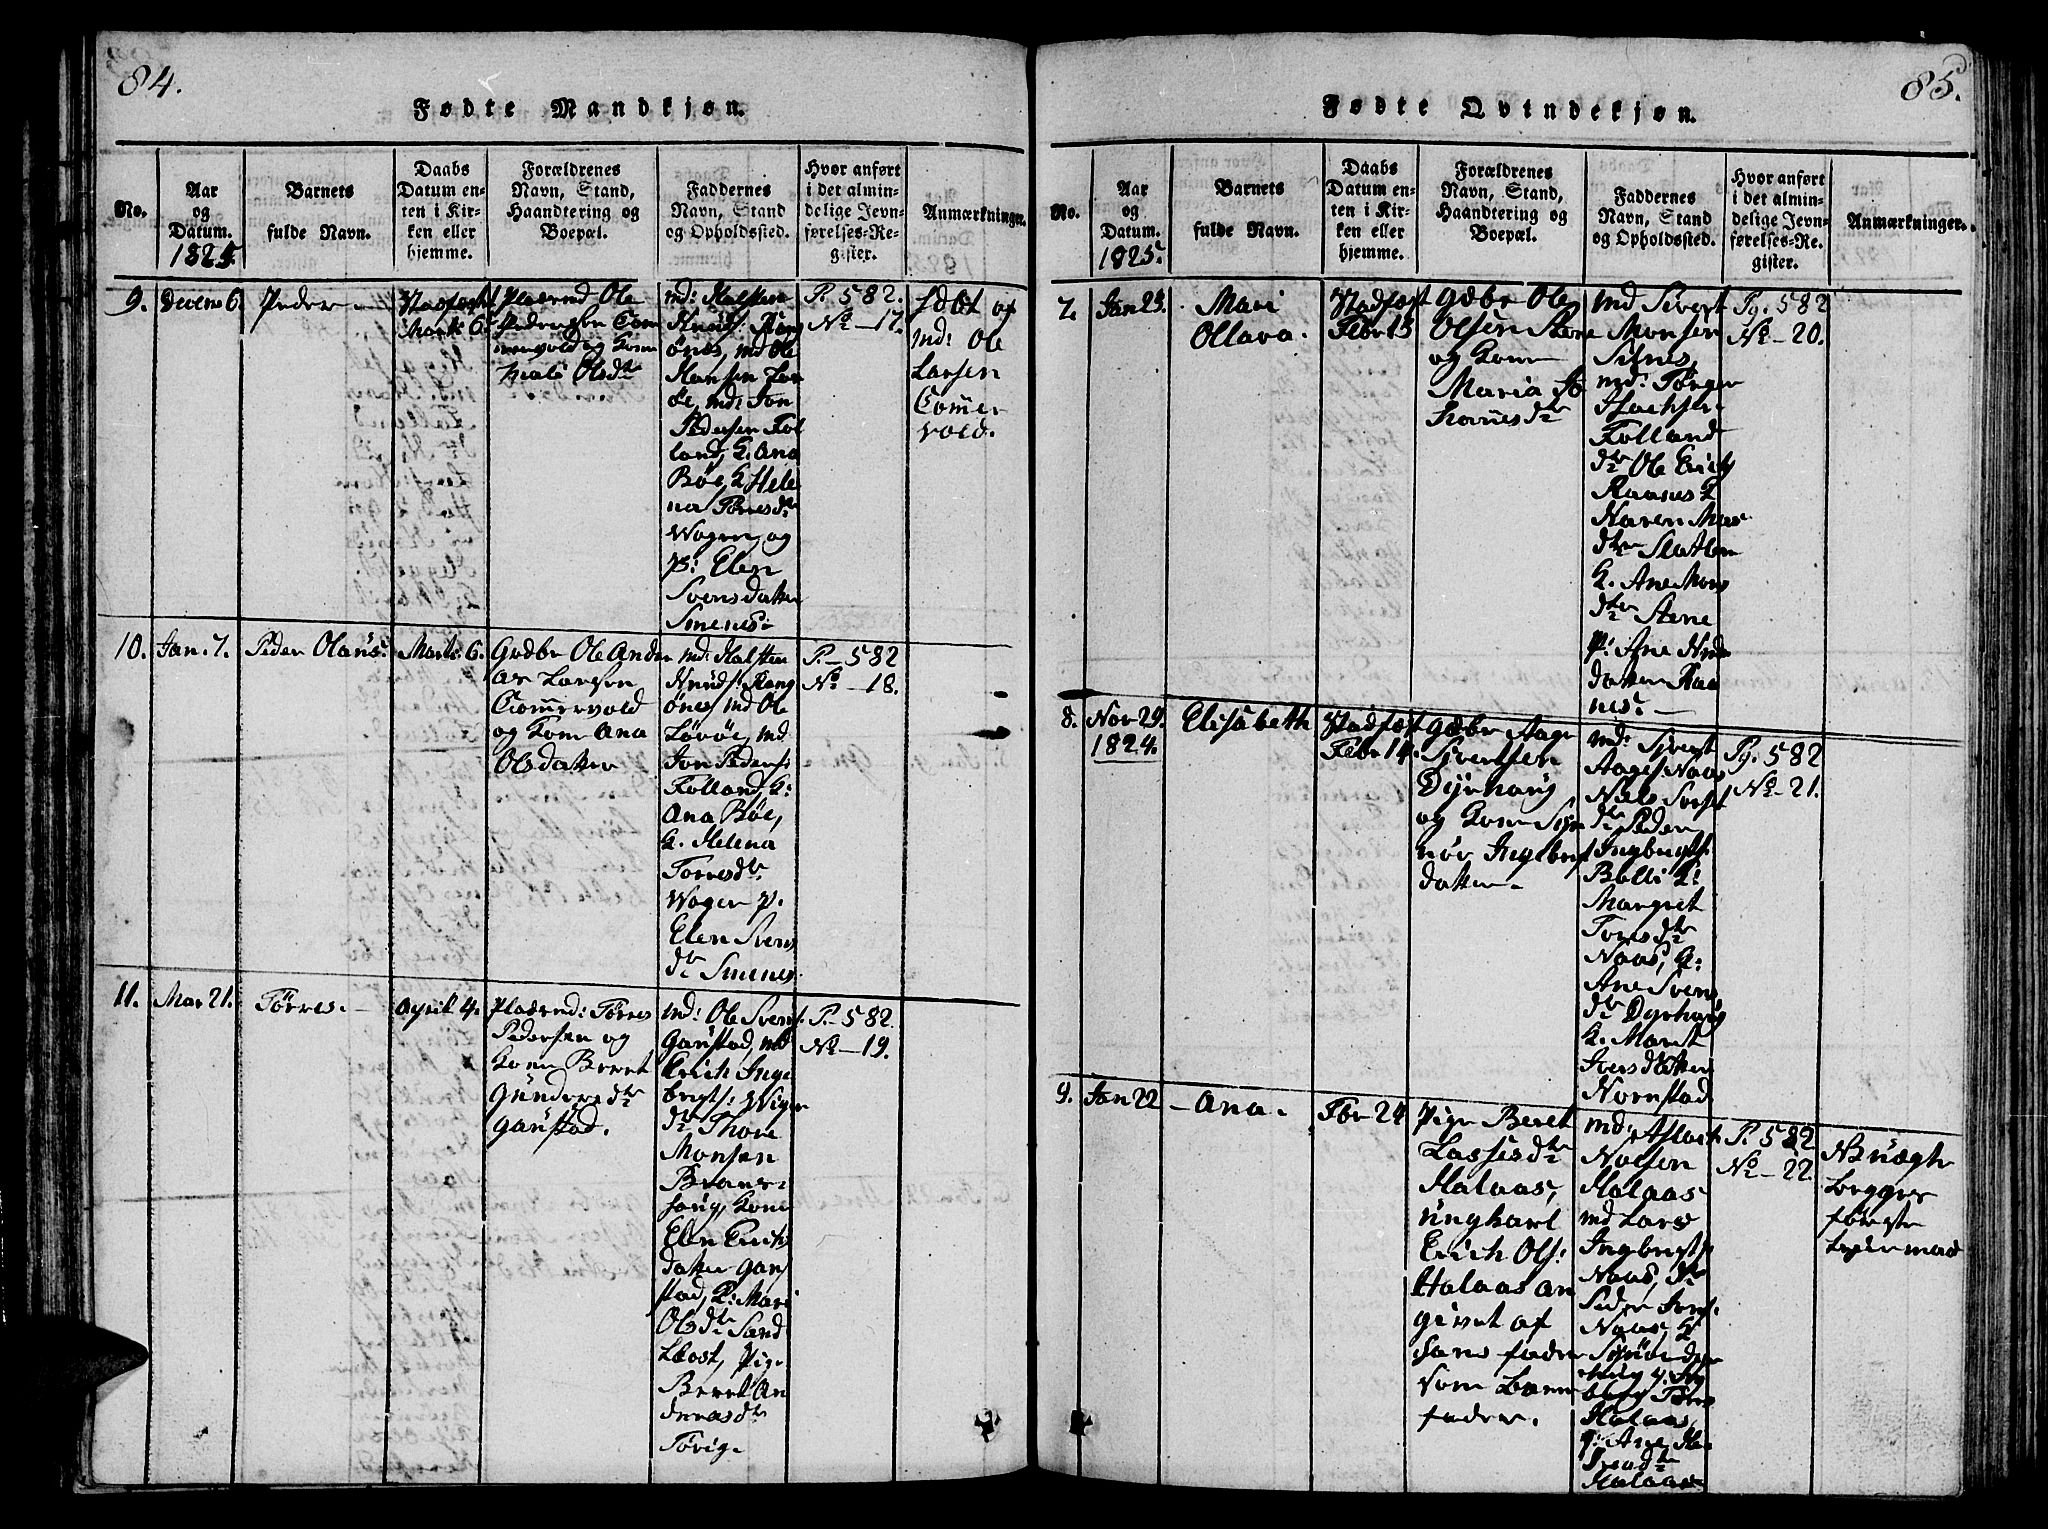 84.
Fødte Mandkjøn.
No.
Aar
og
Datum.
1825.
Barnets
fulde Navn.
Daabs
Datum en-
ten i Kir-
ken eller
hjemme.
Forældrenes
Navn, Stand,
Haandtering og
Boepæl.
Faddernes
Navn, Stand
og Opholdssted.
Hvor anført
i det almin-
delige Jevn-
førelses-Re-
gister.
Anmærkninger.
9.
Decem 6.
Peder
Stadfæst
Marts 6.
Pladsmd Ole
Pedersen
og Kone
Olsdtr
md: Halsten
Knuds: Rang
önes, md Ole
Hansen
öe, md: Jon
Pedersen Fol
land, K. Ana
Böe, K Hele
na Torresdtr
Wogen og
p: Elen
Svensdatter
Smenes:
P. 582.
No - 17.
Födt af
md: Ole
Larsen
Comer
vold.
10.
Jan. 7.
Peder Olaus.
Marts 6.
Gdbr Ole Ander
as Larsen
Comervold
og Kone Ana
Olsdatter
md: Halsten
Knuds: Rang
önes, md Ole
Löröe, md
Jon Peders:
Folland, K:
Ana Böe,
K. Helena
Torresdtr
Wogen p.
Elen Svens
dtr Smenes.
P. - 582
No - 18.
11.
Mar 21.
Törres.
April 4.
Pladsmd: Törres
Pedersen og
Kone Beret
Gundersdtr
Garistad.
md: Ole Svens:
Garistad, md
Erich Inge
brigts: Wogen
dtr Thore
Monsen
Kone
Elen Erichs
datter Gari
stad, K: Mari
Olsdtr Sand
Pige
Beret An
dreasdtr
Törig.
P. - 582.
No - 19.
85.
Fødte Qvindekjøn.
No.
Aar
og
Datum.
1825.
Barnets
fulde Navn.
Daabs
Datum en-
ten i Kir-
ken eller
hjemme.
Forældrenes
Navn, Stand,
Haandtering og
Boepæl.
Faddernes
Navn, Stand
og Opholdssted.
Hvor anført
i det almin-
delige Jevn-
førelses-Re-
gister.
Anmærkninger.
7.
Jan 23.
Mari
Ollava.
Stadfæst
Febr 13
Gdbr Ole
Olsen Stene
og Kone
Maria Jo
hanesdtr
md Sivert
Monsen
Silnes,
md: Törger
Folland
dtr Ole Erichs
Raanes K
Karen Mas
dtr
K. Ane Mons
dtr Stene
P: Ane Knuds
datter Raa
nes: -
Pg. 582
No - 20.
8.
Nov 29.
1824.
Elisabeth
Stadfæst
Febr 14.
Gdbr Aage
Sivertsen
Dyrhaug
og Kone Sig
nör Ingebrigts
datter.
md: Sivert
Aages: Naas
Niels Sivert
dtr Peder
Ingbrigts:
Bolli K:
Margret
Torresdtr
Naas, K:
Ane Svens
dtr Dyrhaug
K. Maret
Iversdatter
Nornstad
Pg. 582
No - 21.
9.
Jan 22
Ana.
Febr 24
Pige Beret
Lassesdtr
Halaas,
ungkarl
Erich Ols:
Halaas an
givet af
hans fader
som barne
fader.
md: Aslach
Nielsen
Halaas
md Lars
Ingbrigts:
Naas, dtr
Peder Jens:
Naas, K
Törres
Halaas,
p: Ane
Halaas
P. 582
No - 22.
NB: Uægte
begges
förste
leiermaal